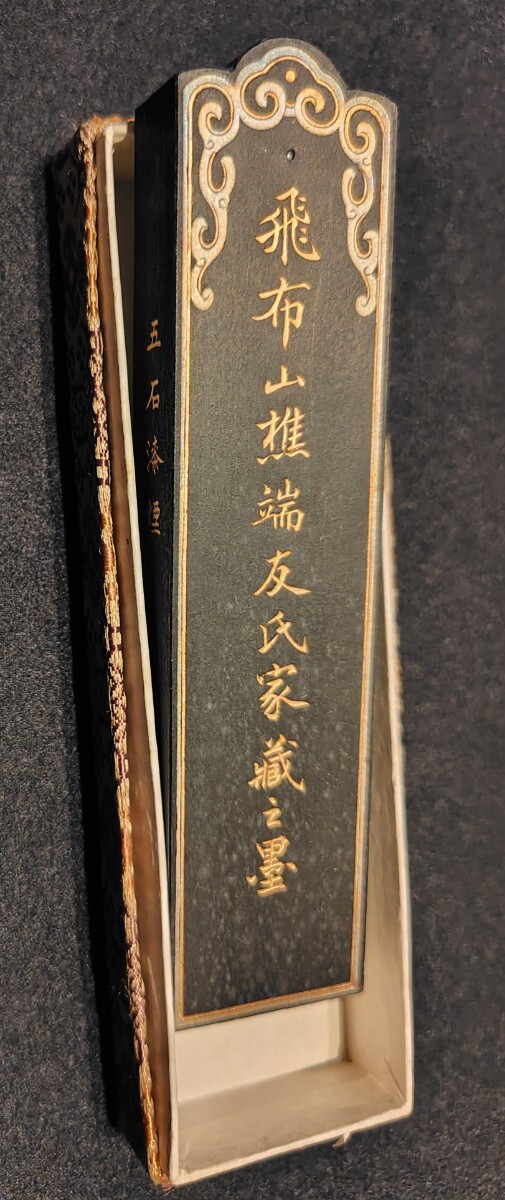 飛布山樵端友氏家藏之墨
五石漆煙